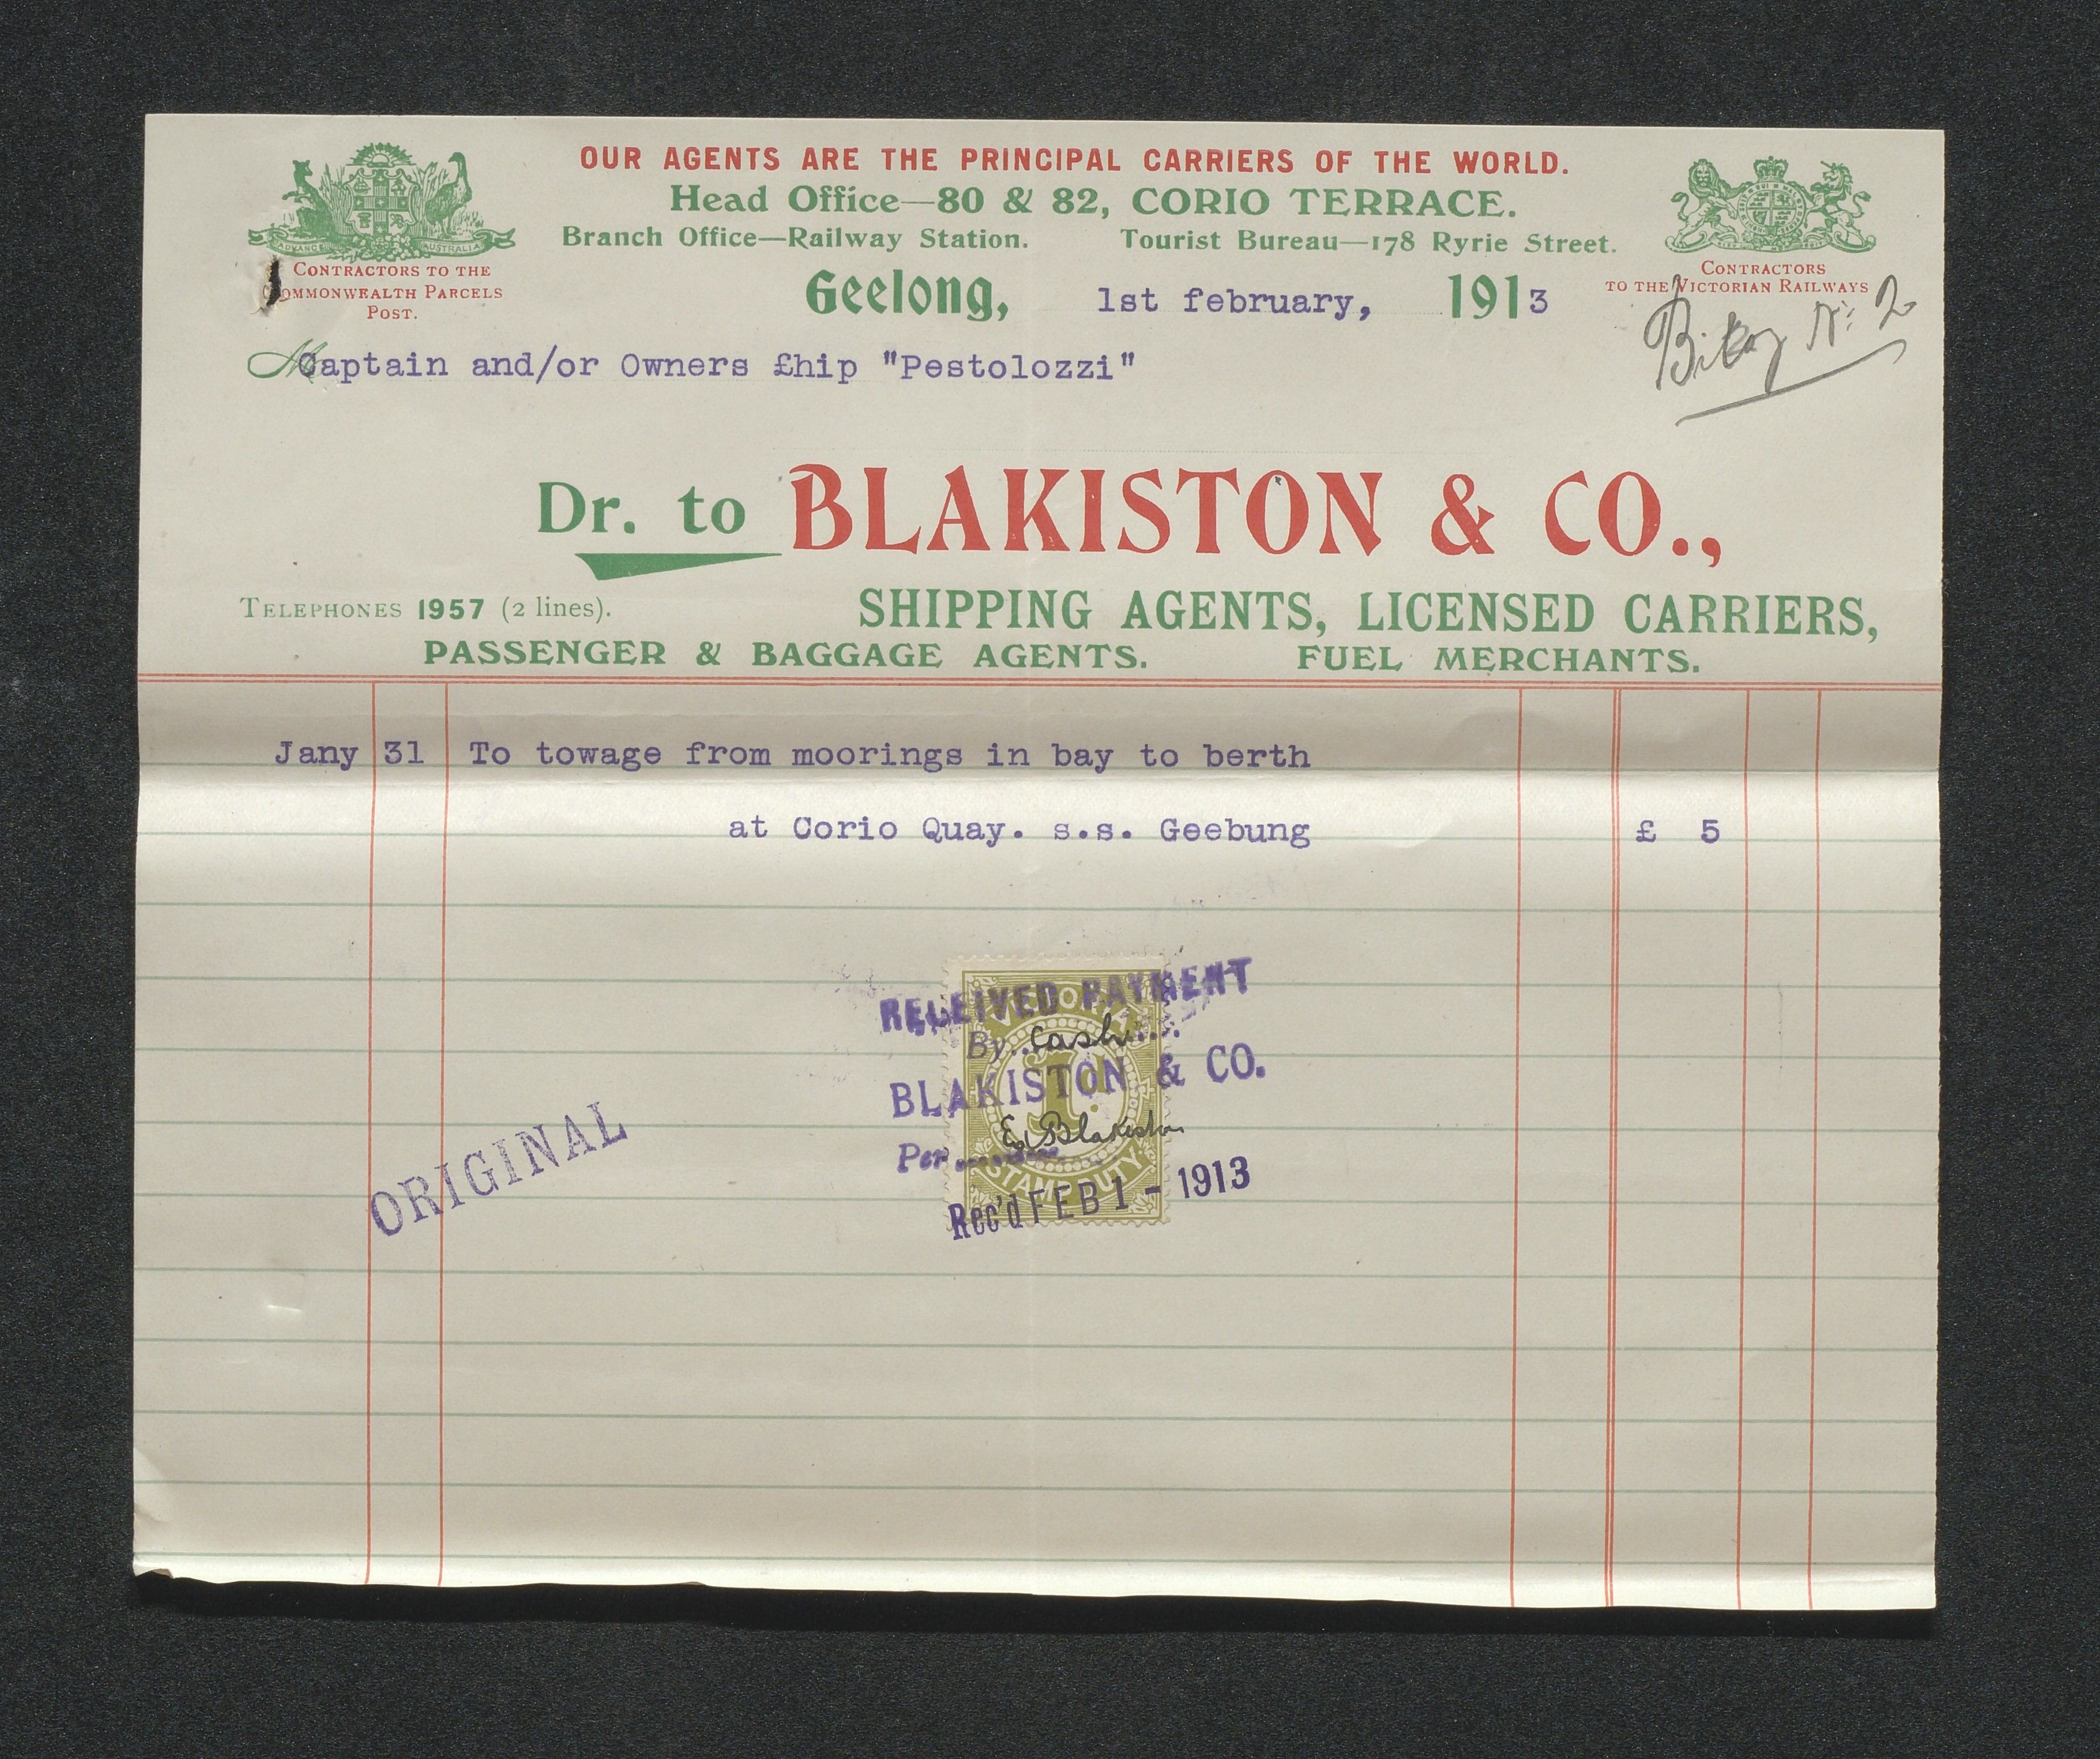 OUR AGENTS ARE THE PRINCIPAL CARRIERS OF THE WORLD.
Head Office—80 & 82, CORIO TERRACE.
Branch Office—Railway Station. Tourist Bureau—178 Ryrie Street.
ADVANCE AUSTRALIA
CONTRACTORS TO THE
COMMONWEALTH PARCELS
POST.
CONTRACTORS
TO THE VICTORIAN RAILWAYS
Geelong, 1st february, 1913
No: 2
M Captain and/or Owners £hip "Pestolozzi"
Dr. to BLAKISTON & CO.,
TELEPHONES 1957 (2 lines). SHIPPING AGENTS, LICENSED CARRIERS,
PASSENGER & BAGGAGE AGENTS. FUEL MERCHANTS.
Jany 31 To towage from moorings in bay to berth
at Corio Quay. s.s. Geebung £ 5
RECEIVED PAYMENT
By cash
BLAKISTON & CO.
Per E. Blakiston
Rec'd FEB 1 - 1913
VICTORIA
1D.
STAMP DUTY
ORIGINAL